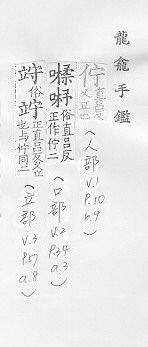 龍龕手鑑
佇直呂反久立也(人部 v.1 P.10 b.9)
㗌㕂俗直呂反正作佇二(口部 v.2 P.34 a.3)
竚俗竚正直呂反久立也与佇同二(立部 v.3 P.57 a.8)